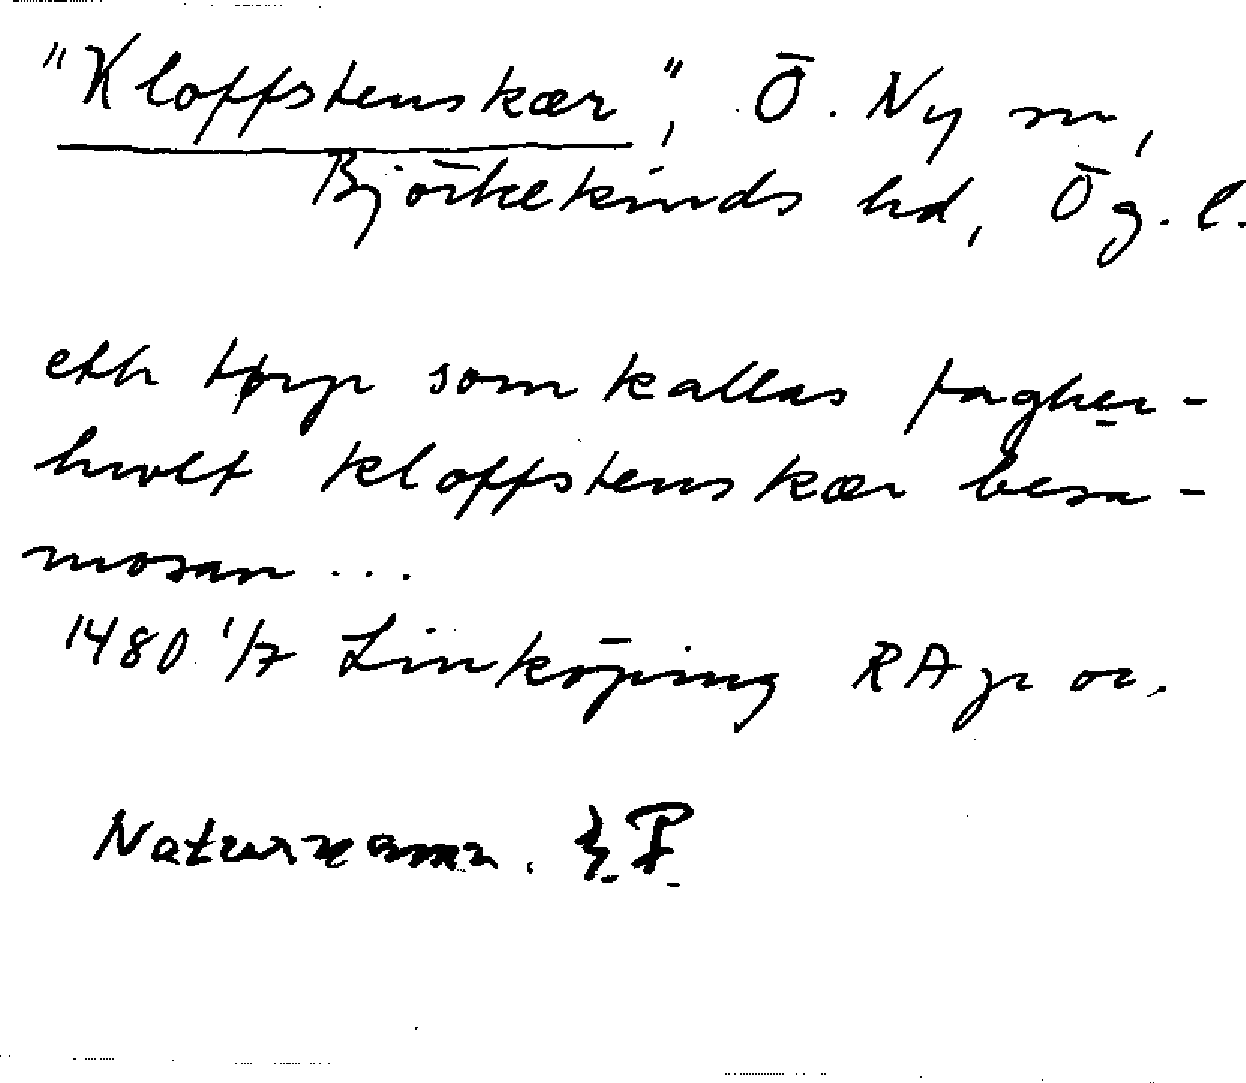 "Kloffstenskær", Ö. Ny sn,
Björkekinds hd, Ög. l.
etth torp som kallas fagher-
hwlt kloffstenskær besa-
mosan ...
1480 1/7 Linköping RAp or.
Naturnamn.